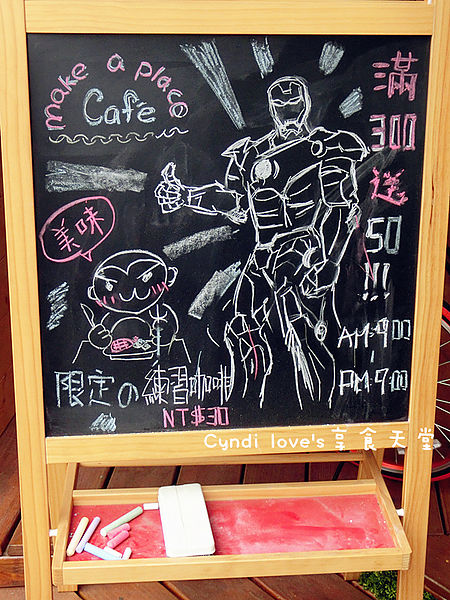 make a place
Café
滿
300
送
50
!!!
美味
AM:9:00
PM:9:00
限定の練習咖啡
NT$30
Cyndi love's享食天堂